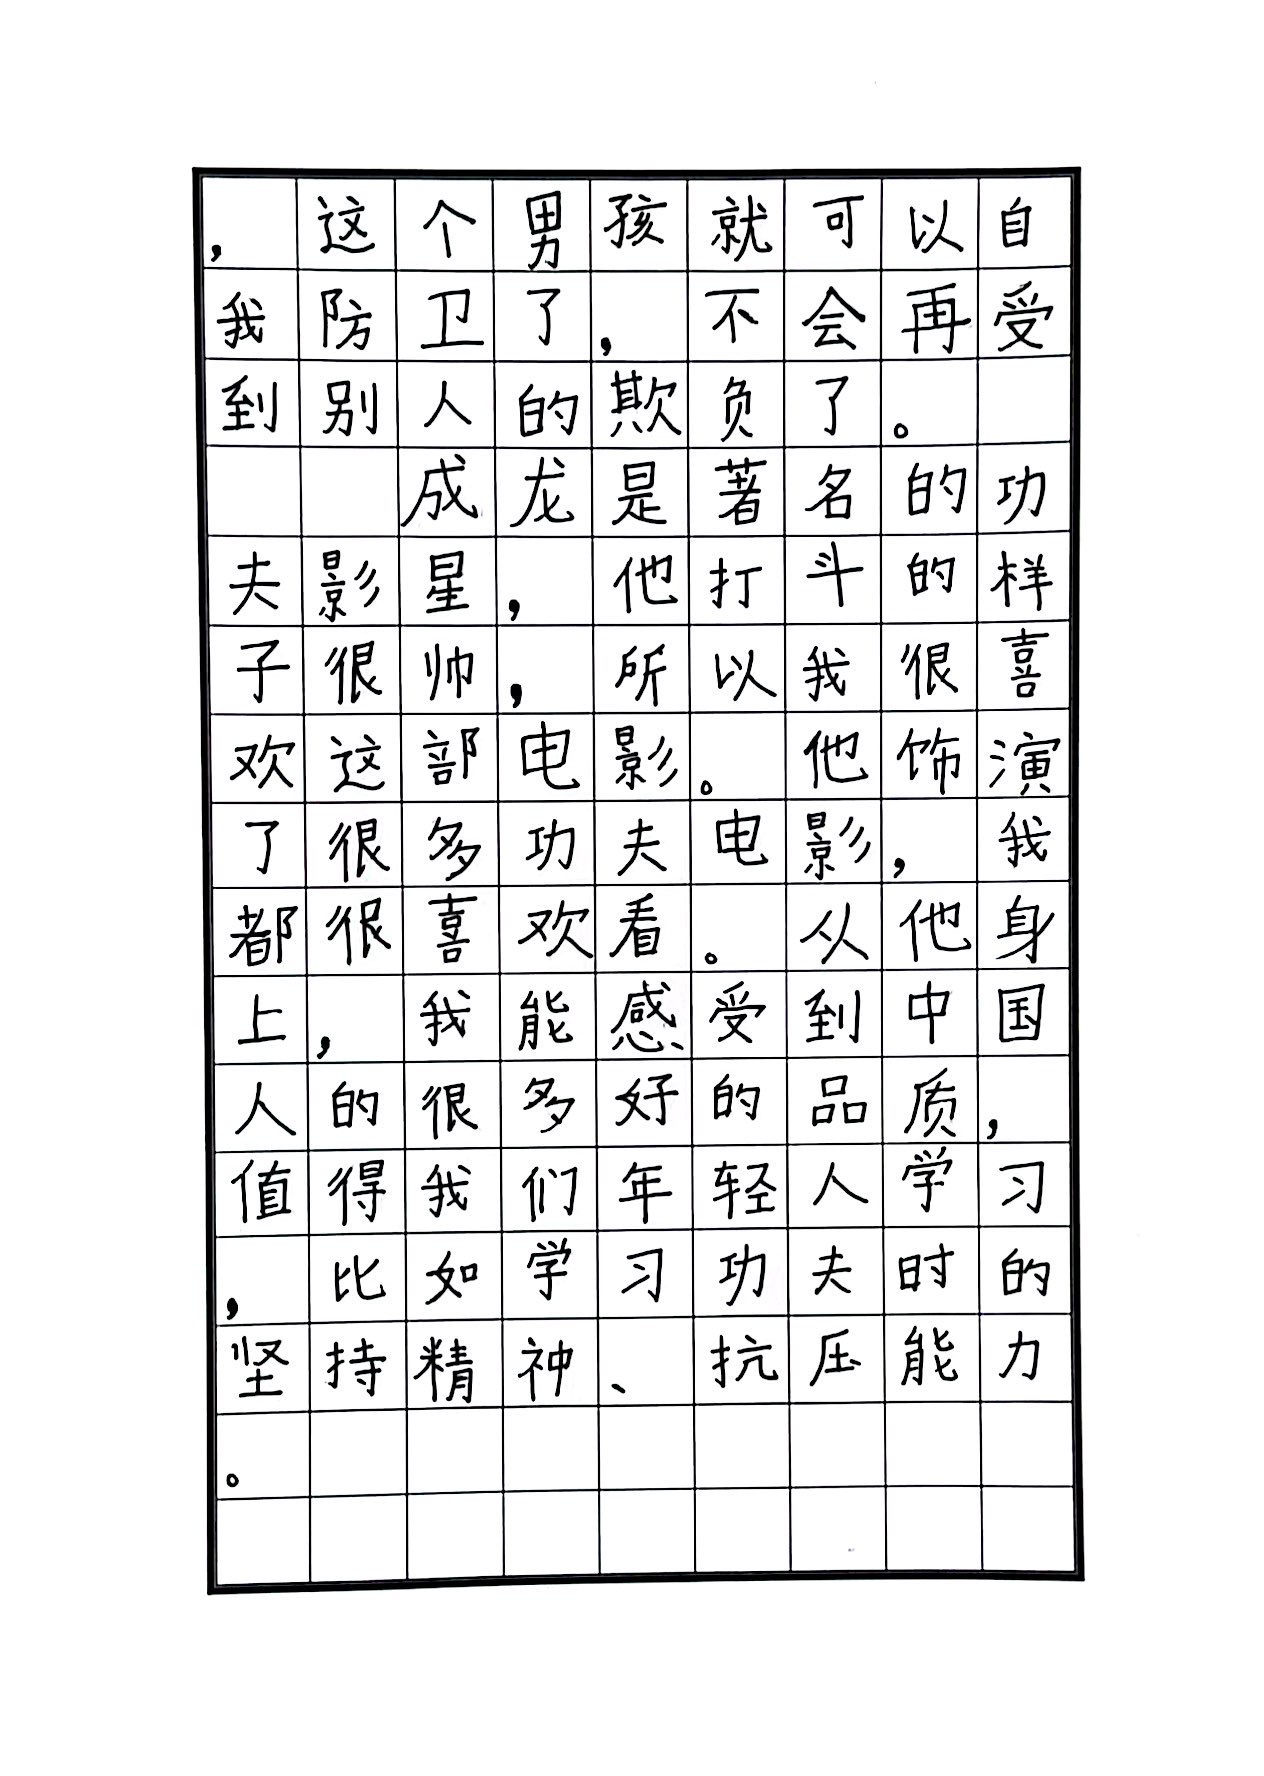 ，这个男孩就可以自
我防卫了，不会再受
到别人的欺负了。
成龙是著名的功
夫影星，他打斗的样
子很帅，所以我很喜
欢这部电影。他饰演
了很多功夫电影，我
都很喜欢看。从他身
上，我能感受到中国
人的很多好的品质，
值得我们年轻人学习
，比如学习功夫时的
坚持精神、抗压能力
。